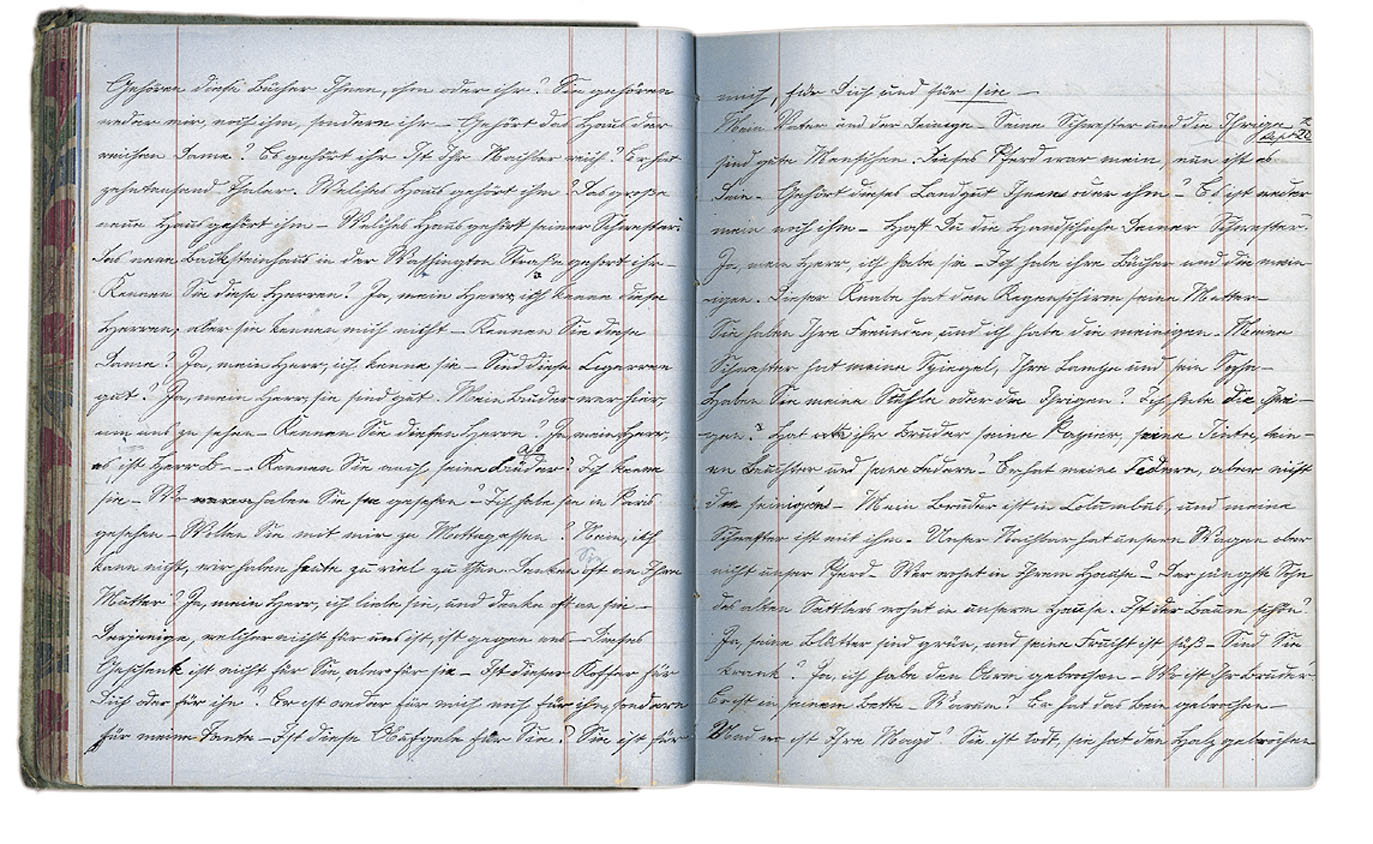 Gehören diese Bücher Ihnen, ihm oder ihr? Sie gehören
weder mir, noch ihm, sondern ihr – Gehört das Haus der
reichen Dame? Es gehört ihr Ist Ihr Nachbar reich? Er hat
zehntausend Thaler. Welches Haus gehört ihm? Das große
neue Haus gehört ihm – Welches Haus gehört seiner Schwester?
Das neue Backsteinhaus in der Washington Straße gehört ihr –
Kennen Sie diese Herren? Ja, mein Herr, ich kenne diese
Herren, aber sie kennen mich nicht – Kennen Sie diese
Dame? Ja, mein Herr, ich kenne sie – Sind diese Cigarren
gut? Ja, mein Herr, sie sind gut. Mein Bruder war hier,
um uns zu sehen – Kennen Sie diesen Herrn? Ja, mein Herr,
es ist Herr B – – Kennen Sie auch seine Brüder? Ich kenne
sie – Wo haben Sie sie gesehen? – Ich habe sie in Paris
gesehen – Wollen Sie mit mir zu Mittagessen? Nein, ich
kann nicht, wir haben heute zu viel zu thun. Denken Sie oft an Ihre
Mutter? Ja, mein Herr, ich liebe sie, und denke oft an sie –
Derjenige, welcher nicht für uns ist, ist gegen uns – Dieses
Geschenk ist nicht für Sie aber für sie – Ist dieser Koffer für
Dich oder für ihn? Er ist weder für mich noch für ihn, sondern
für meine Tante – Ist diese für Sie? Sie ist für
mich, für Dich und für sie –
Mein Vater und der Deinige. Seine Schwester und die Ihrige
sind gute Menschen. Dieses Pferd war mein, nun ist es
Dein – Gehört dieses Landgut Ihnen oder ihm? Es ist weder
mein noch ihm – Hast Du die Handschuhe Deiner Schwester.
Ja, mein Herr, ich habe sie – Ich habe ihre Bücher und die mein-
igen. Dieser Knabe hat den Regenschirm seine Mutter –
Sie haben Ihre Freunden, und ich habe die meinigen. Meine
Schwester hat meine Spiegel, Ihre Lampe und sein Sopha –
Haben Sie meine Stühle oder die Ihrigen? Ich habe die Ihri-
gen. Hat ihr Bruder seine Papier, seine Tinte, sein-
en Leuchter und seine Federn? Er hat meine Federn, aber nicht
die seinigen – Mein Bruder ist in Columbus, und meine
Schwester ist mit ihm – Unser Nachbar hat unsern Wagen aber
nicht unser Pferd – Wer wohnt in Ihrem Hause? – Der jüngste Sohn
des alten Sattlers wohnt in unserm Hause. Ist der Baum schön?
Ja, seine Blätter sind grün, und seine Frucht ist süß – Sind Sie
krank? Ja, ich habe den Arm gebrochen – Wo ist Ihr Bruder
Er ist in seinem Bette – Warum? Er hat das Bein gebrochen –
Und wo ist Ihre Magd? Sie ist todt, sie hat den Hals gebrochen